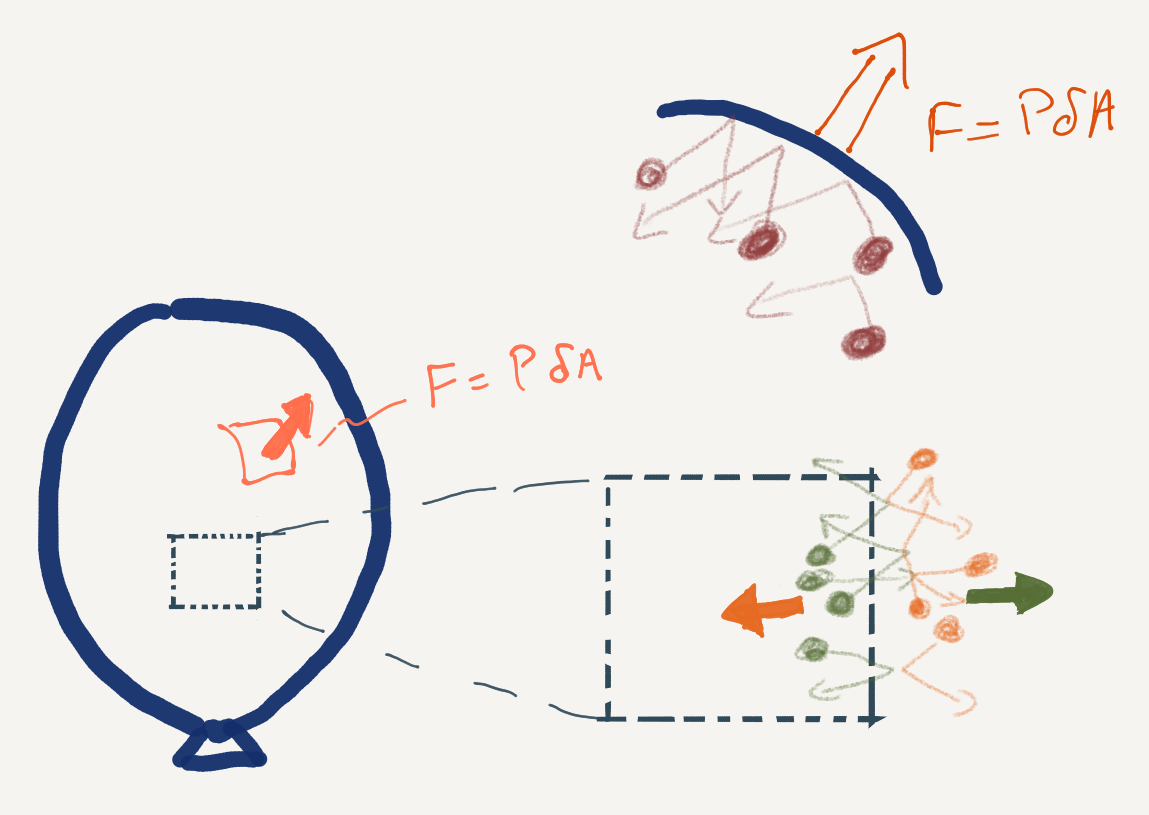 F = PδA
F = PδA